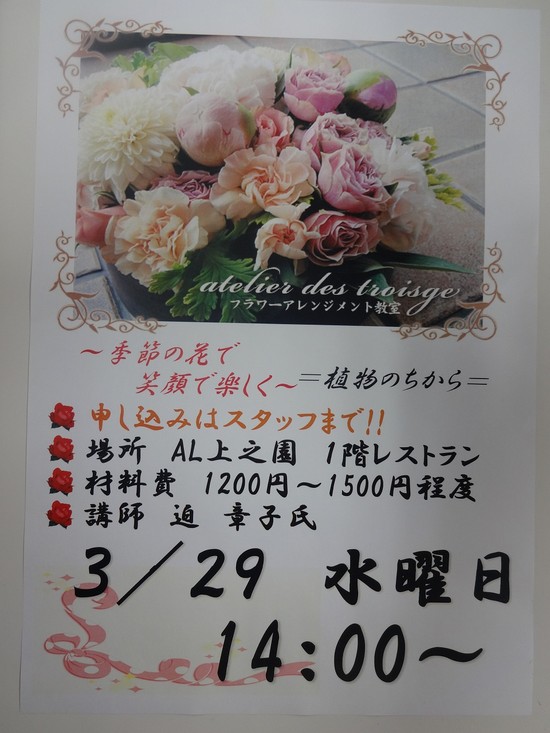 atelier des troisge
フラワーアレンジメント教室
～季節の花で
笑顔で楽しく～
＝植物のちから＝
申し込みはスタッフまで!!
場所　AL上之園　1階レストラン
材料費　1200円～1500円程度
講師　迫　章子氏
3／29　水曜日
14:00～